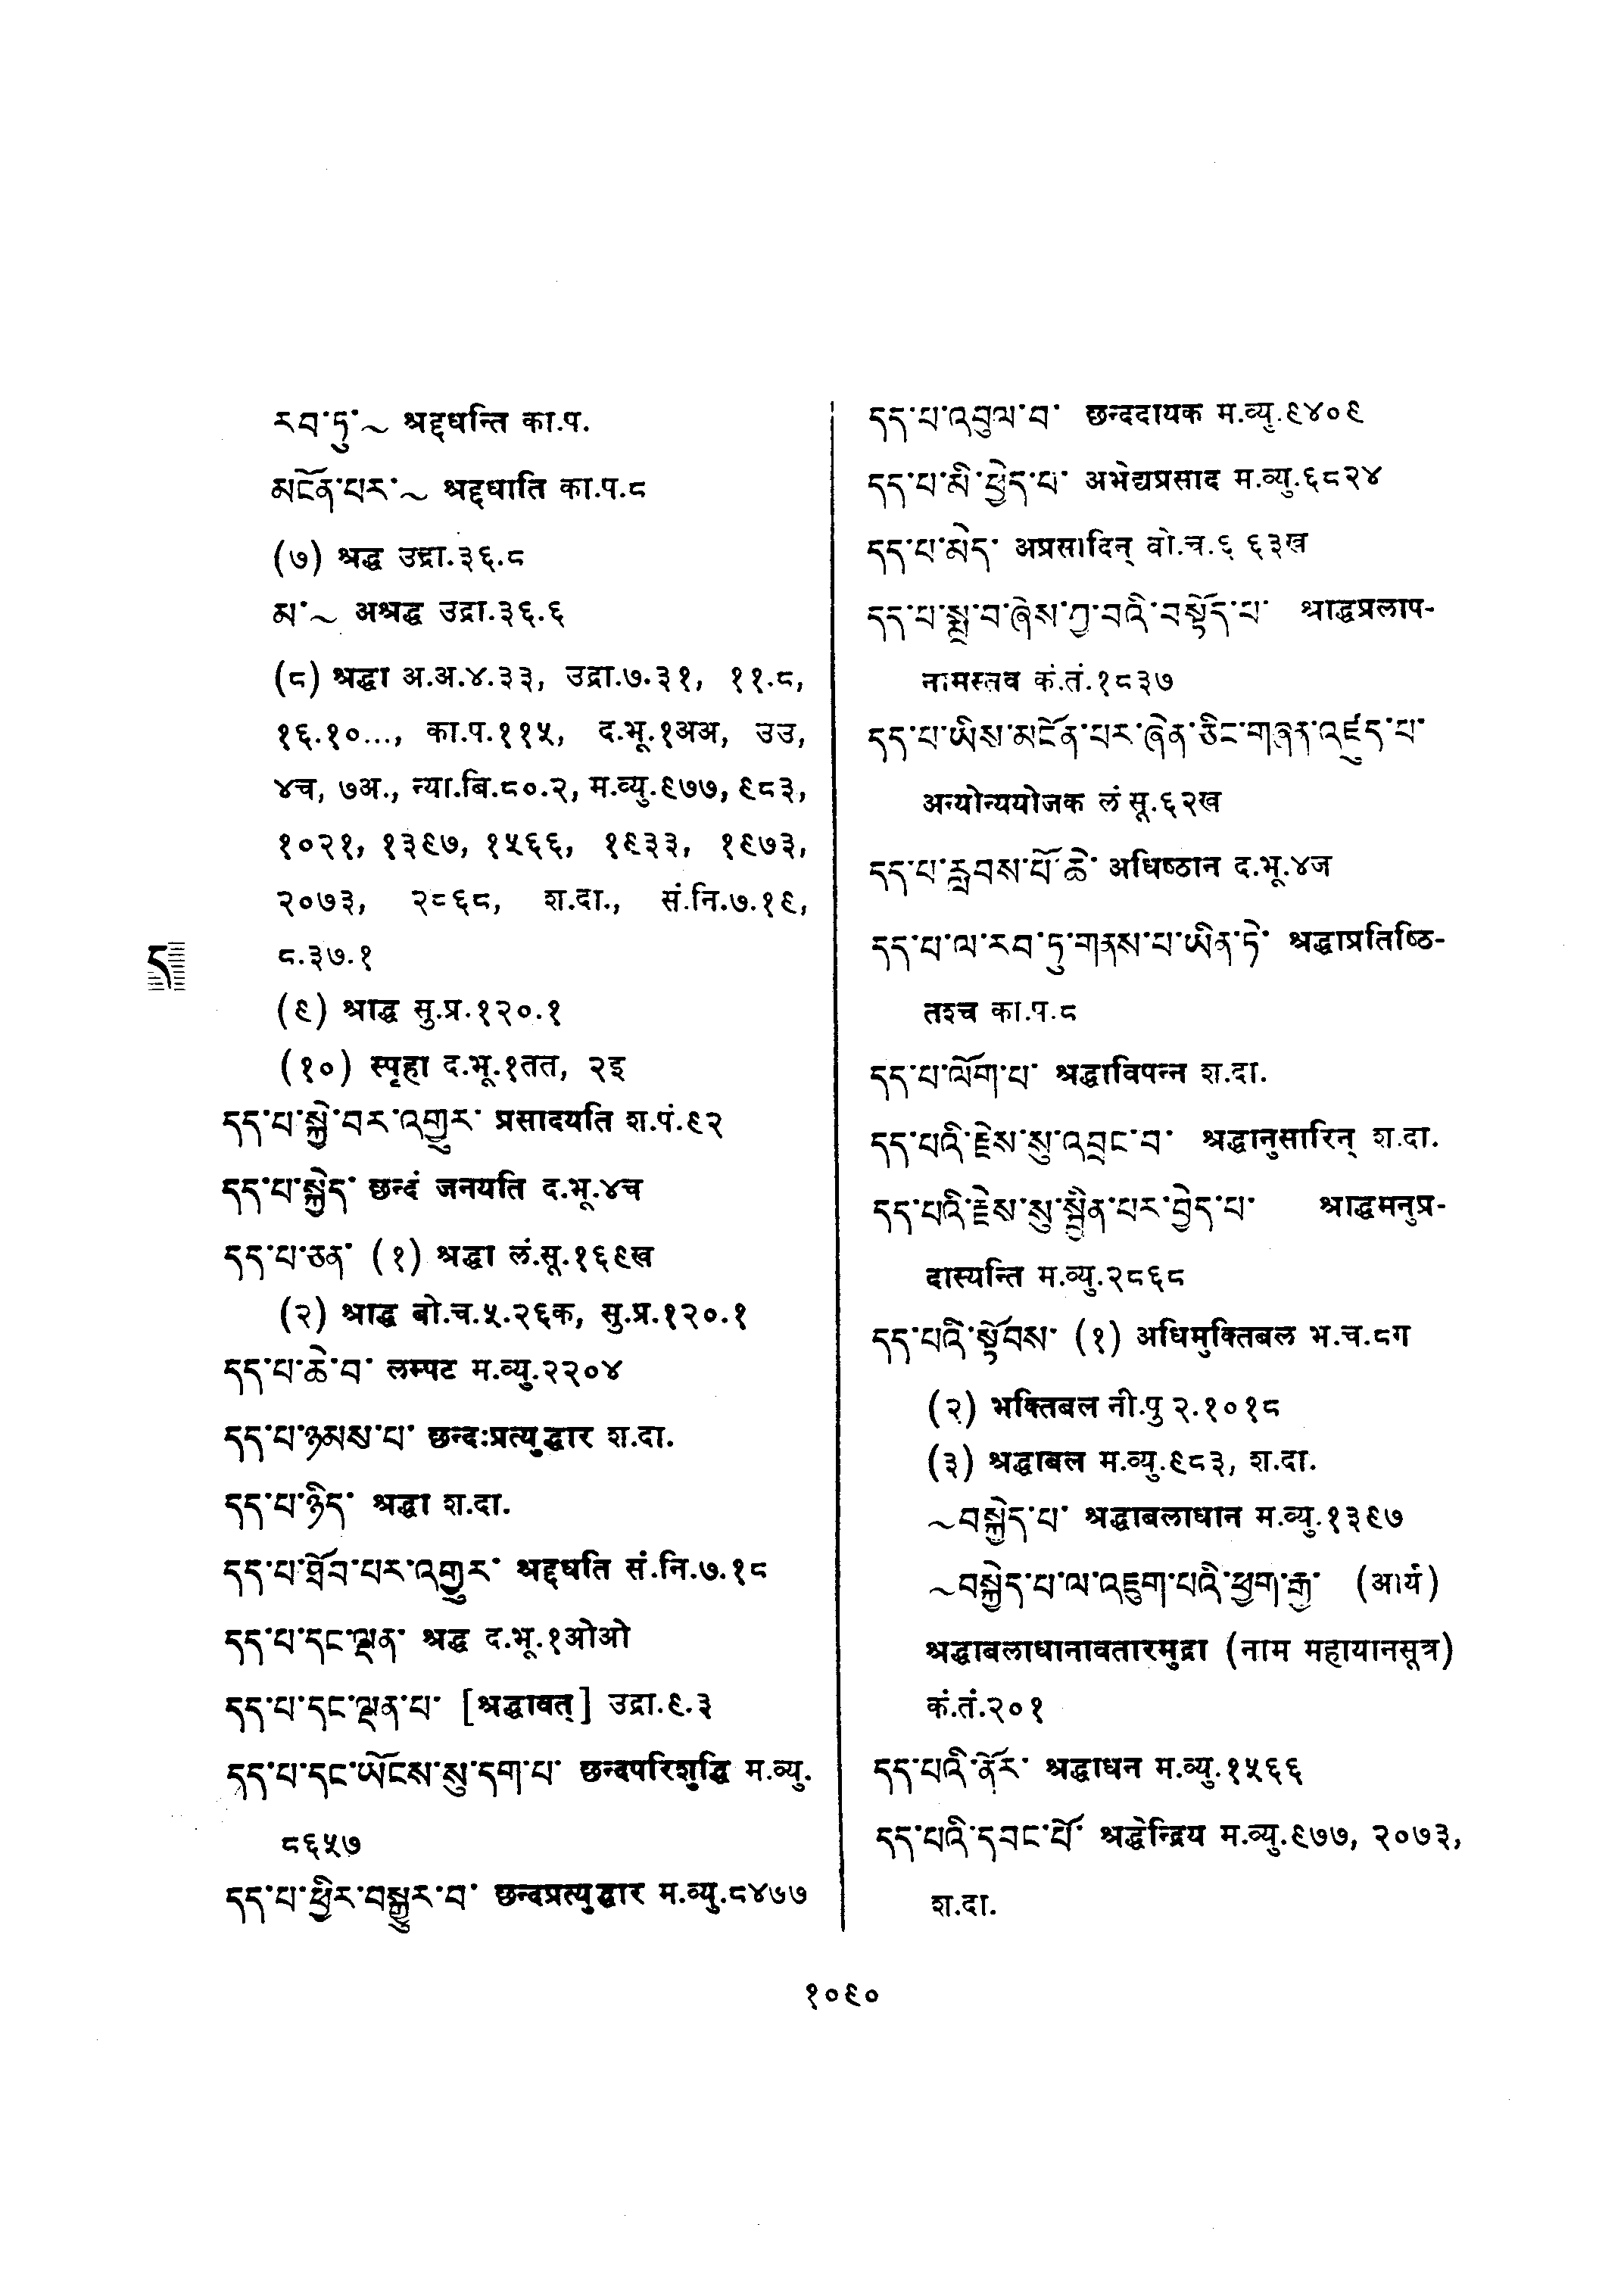 རབ་ཏུ་～ श्रद्दधन्ति का.प.
མངོན་པར་～ श्रद्दधाति का.प.८
(७) श्रद्ध उद्रा.३६.८
མ་～ अश्रद्ध उद्रा.३६.६
(८) श्रद्धा अ.अ.४.३३, उद्रा.७.३१, ११.८,
१६.१०..., का.प.११५, द.भू.१अअ, उउ,
४च, ७अ., न्या.बि.८०.२, म.व्यु.९७७, ९८३,
१०२१, १३९७, १५६६, १९३३, १९७३,
२०७३, २८६८, श.दा., सं.नि.७.१९,
ད
८.३७.१
(९) श्राद्ध सु.प्र.१२०.१
(१०) स्पृहा द.भू.१तत, २इ
དད་པ་སྐྱེ་བར་འགྱུར་ प्रसादयति श.पं.९२
དད་པ་སྐྱེད་ छन्दं जनयति द.भू.४च
དད་པ་ཅན་ (१) श्रद्धा लं.सू.१६९ख
(२) श्राद्ध बो.च.५.२६क, सु.प्र.१२०.१
དད་པ་ཆེ་བ་ लम्पट म.व्यु.२२०४
དད་པ་ཉམས་པ་ छन्दःप्रत्युद्धार श.दा.
དད་པ་ཉིད་ श्रद्धा श.दा.
དད་པ་ཐོབ་པར་འགྱུར་ श्रद्दधति सं.नि.७.१८
དད་པ་དང་ལྡན་ श्रद्ध द.भू.१ओओ
དད་པ་དང་ལྡན་པ་ [श्रद्धावत्] उद्रा.९.३
དད་པ་དང་ཡོངས་སུ་དག་པ་ छन्दपरिशुद्धि म.व्यु.
८६५७
དད་པ་ཕྱིར་བསྒྱུར་བ་ छन्दप्रत्युद्धार म.व्यु.८४७७
དད་པ་འབུལ་བ་ छन्ददायक म.व्यु.९४०९
དད་པ་མི་ཕྱེད་པ་ अभेद्यप्रसाद म.व्यु.६८२४
དད་པ་མེད་ अप्रसादिन् बो.च.६ ६३ख
དད་པ་སྨྲ་བ་ཞེས་བྱ་བའི་བསྟོད་པ་ श्राद्धप्रलाप-
नामस्तव कं.तं.१८३७
དད་པ་ཡིས་མངོན་པར་ཞེན་ཅིང་གཞན་འཛུད་པ་
अन्योन्ययोजक लं सू.६२ख
དད་པ་རླབས་པོ་ཆེ་ अधिष्ठान द.भू.४ज
དད་པ་ལ་རབ་ཏུ་གནས་པ་ཡིན་ཏེ་ श्रद्धाप्रतिष्ठि-
तश्च का.प.८
དད་པ་ལོག་པ་ श्रद्धाविपन्न श.दा.
དད་པའི་རྗེས་སུ་འབྲང་བ་ श्रद्धानुसारिन् श.दा.
དད་པའི་རྗེས་སུ་སྦྱིན་པར་བྱེད་པ་ श्राद्धमनुप्र-
दास्यन्ति म.व्यु.२८६८
དད་པའི་སྟོབས་ (१) अधिमुक्तिबल भ.च.८ग
(२) भक्तिबल नी.पु २.१०१८
(३) श्रद्धाबल म.व्यु.९८३, श.दा.
～བསྐྱེད་པ་ श्रद्धाबलाधान म.व्यु.१३९७
～བསྐྱེད་པ་ལ་འཇུག་པའི་ཕྱག་རྒྱ་ (आर्य)
श्रद्धाबलाधानावतारमुद्रा (नाम महायानसूत्र)
कं.तं.२०१
དད་པའི་ནོར་ श्रद्धाधन म.व्यु.१५६६
དད་པའི་དབང་པོ་ श्रद्धेन्द्रिय म.व्यु.९७७, २०७३,
श.दा.
१०९०